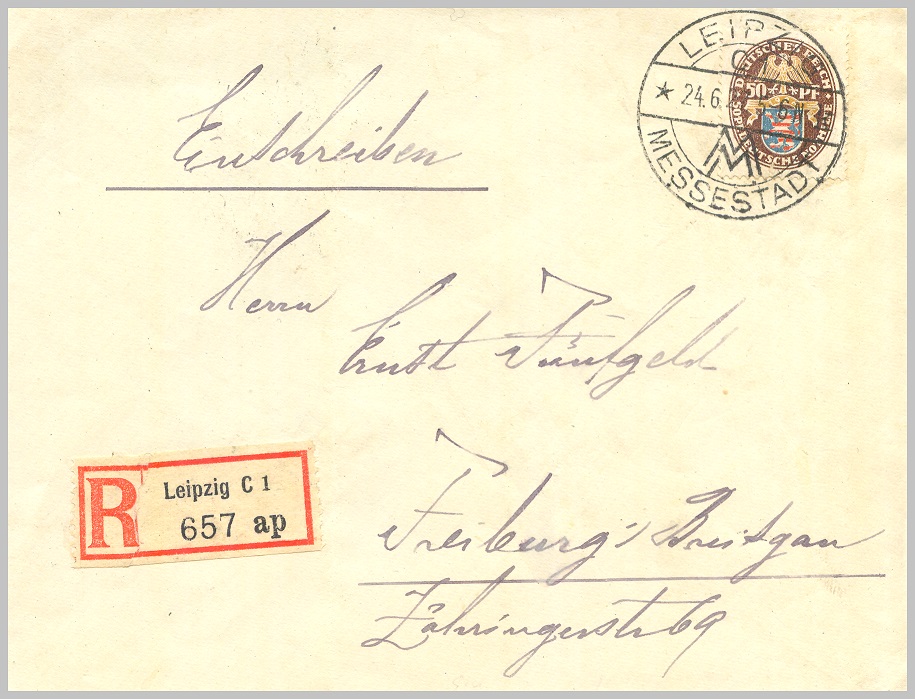 LEIPZ
C
★ 24.6. 5-6 N
MESSESTADT
DEUTSCHES REICH
50 PF
DEUTSCHE NOTHILFE
Einschreiben
Herrn
Ernst Fünfgeld
Freiburg i Breisgau
Zähringerstr 69
R Leipzig C 1
657 ap